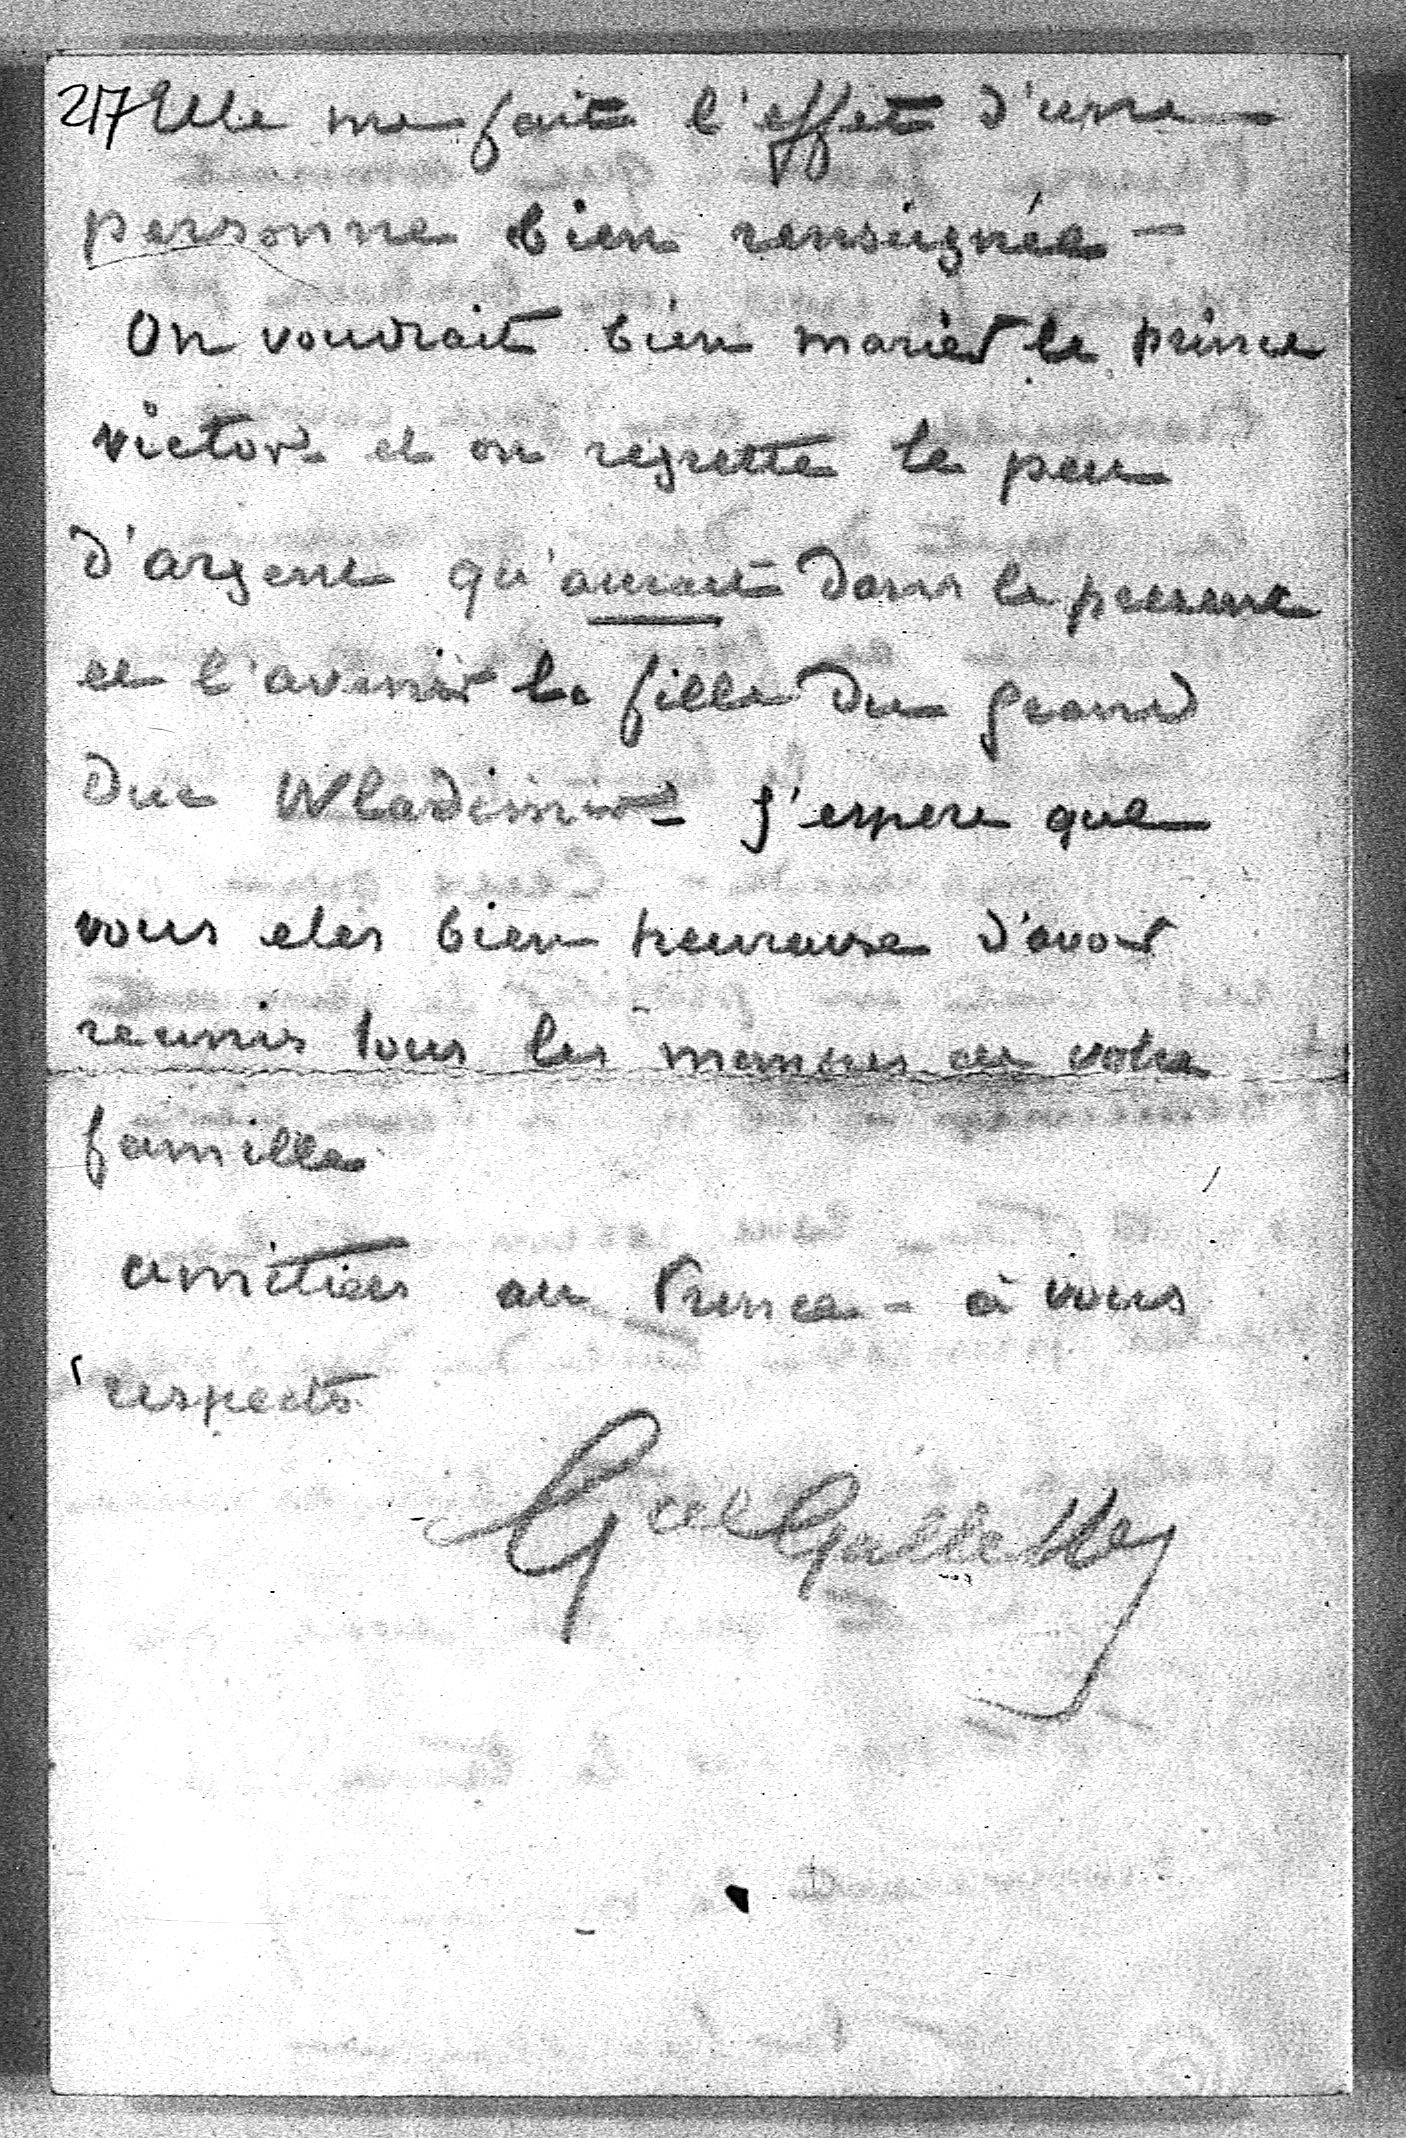 217 Elle me fait l'effet d'une
personne bien renseignée -
On voudrait bien marier le prince
victor et on regrette le peu
d'argent qu'aurait dans le present
et l'avenir la fille du grand
Duc Wladimir - J'espere que
vous etes bien heureuse d'avoir
reunis tous les membres de votre
famille
amities au Prince - à vous
respects
Gal Galliffet